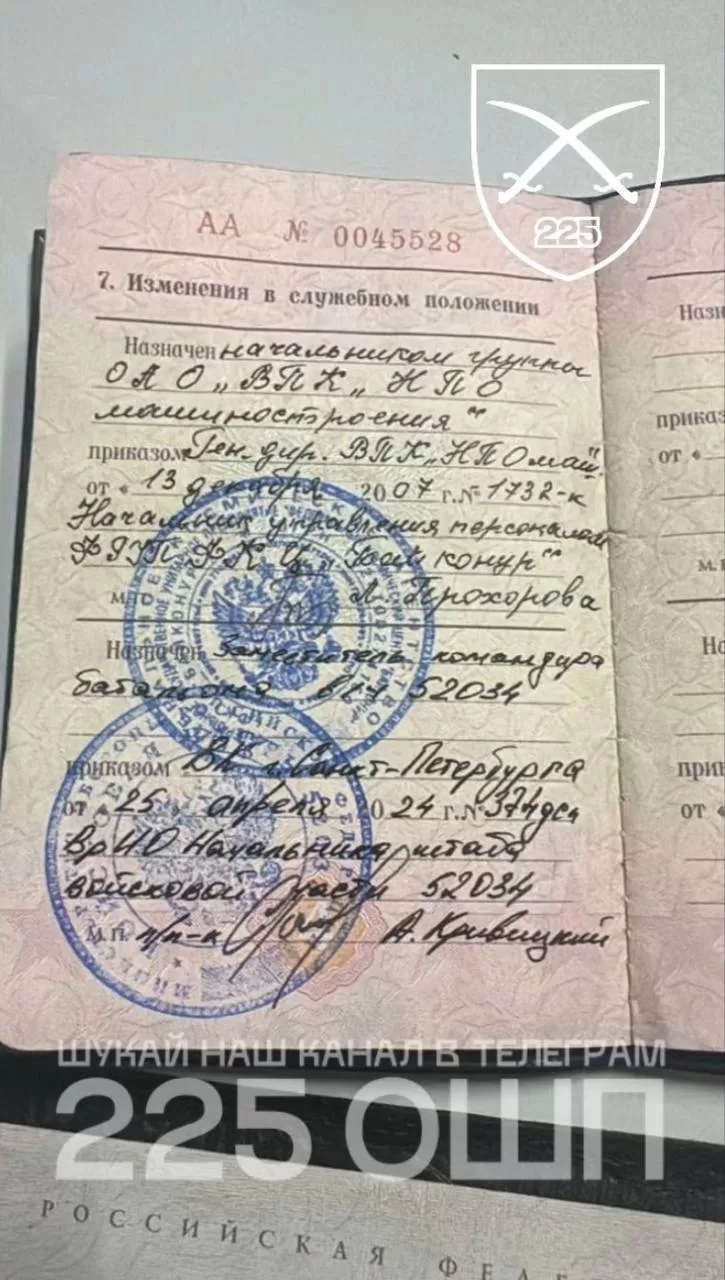 225
АА № 0045528
7. Изменения в служебном положении
Назначен начальником группы
ОАО „ВПК „НПО
машиностроения“
приказом Ген. дир. ВПК „НПОмаш“
от « 13 декабря 2007 г. № 1732-к
Начальник управления персоналом
ФГУП ФКЦ „Байконур“
М.П. Л. Прохорова
Назначен Заместитель командира
батальона в/ч 52034
приказом ВК г. Санкт-Петербурга
от « 25 апреля 2024 г. № 374дсп
ВрИО Начальника штаба
войсковой части 52034
М.П. п/п-к А. Кривицкий
Назн
приказ
от «
М.П
На
прик
от «
ШУКАЙ НАШ КАНАЛ В ТЕЛЕГРАМ
225 ОШП
РОССИЙСКАЯ ФЕД